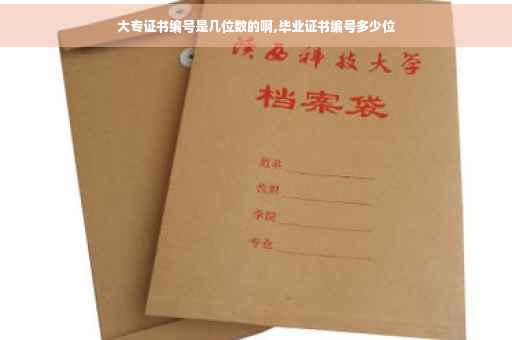 大专证书编号是几位数的啊,毕业证书编号多少位
陕西科技大学
档案袋
姓名
学院
专业